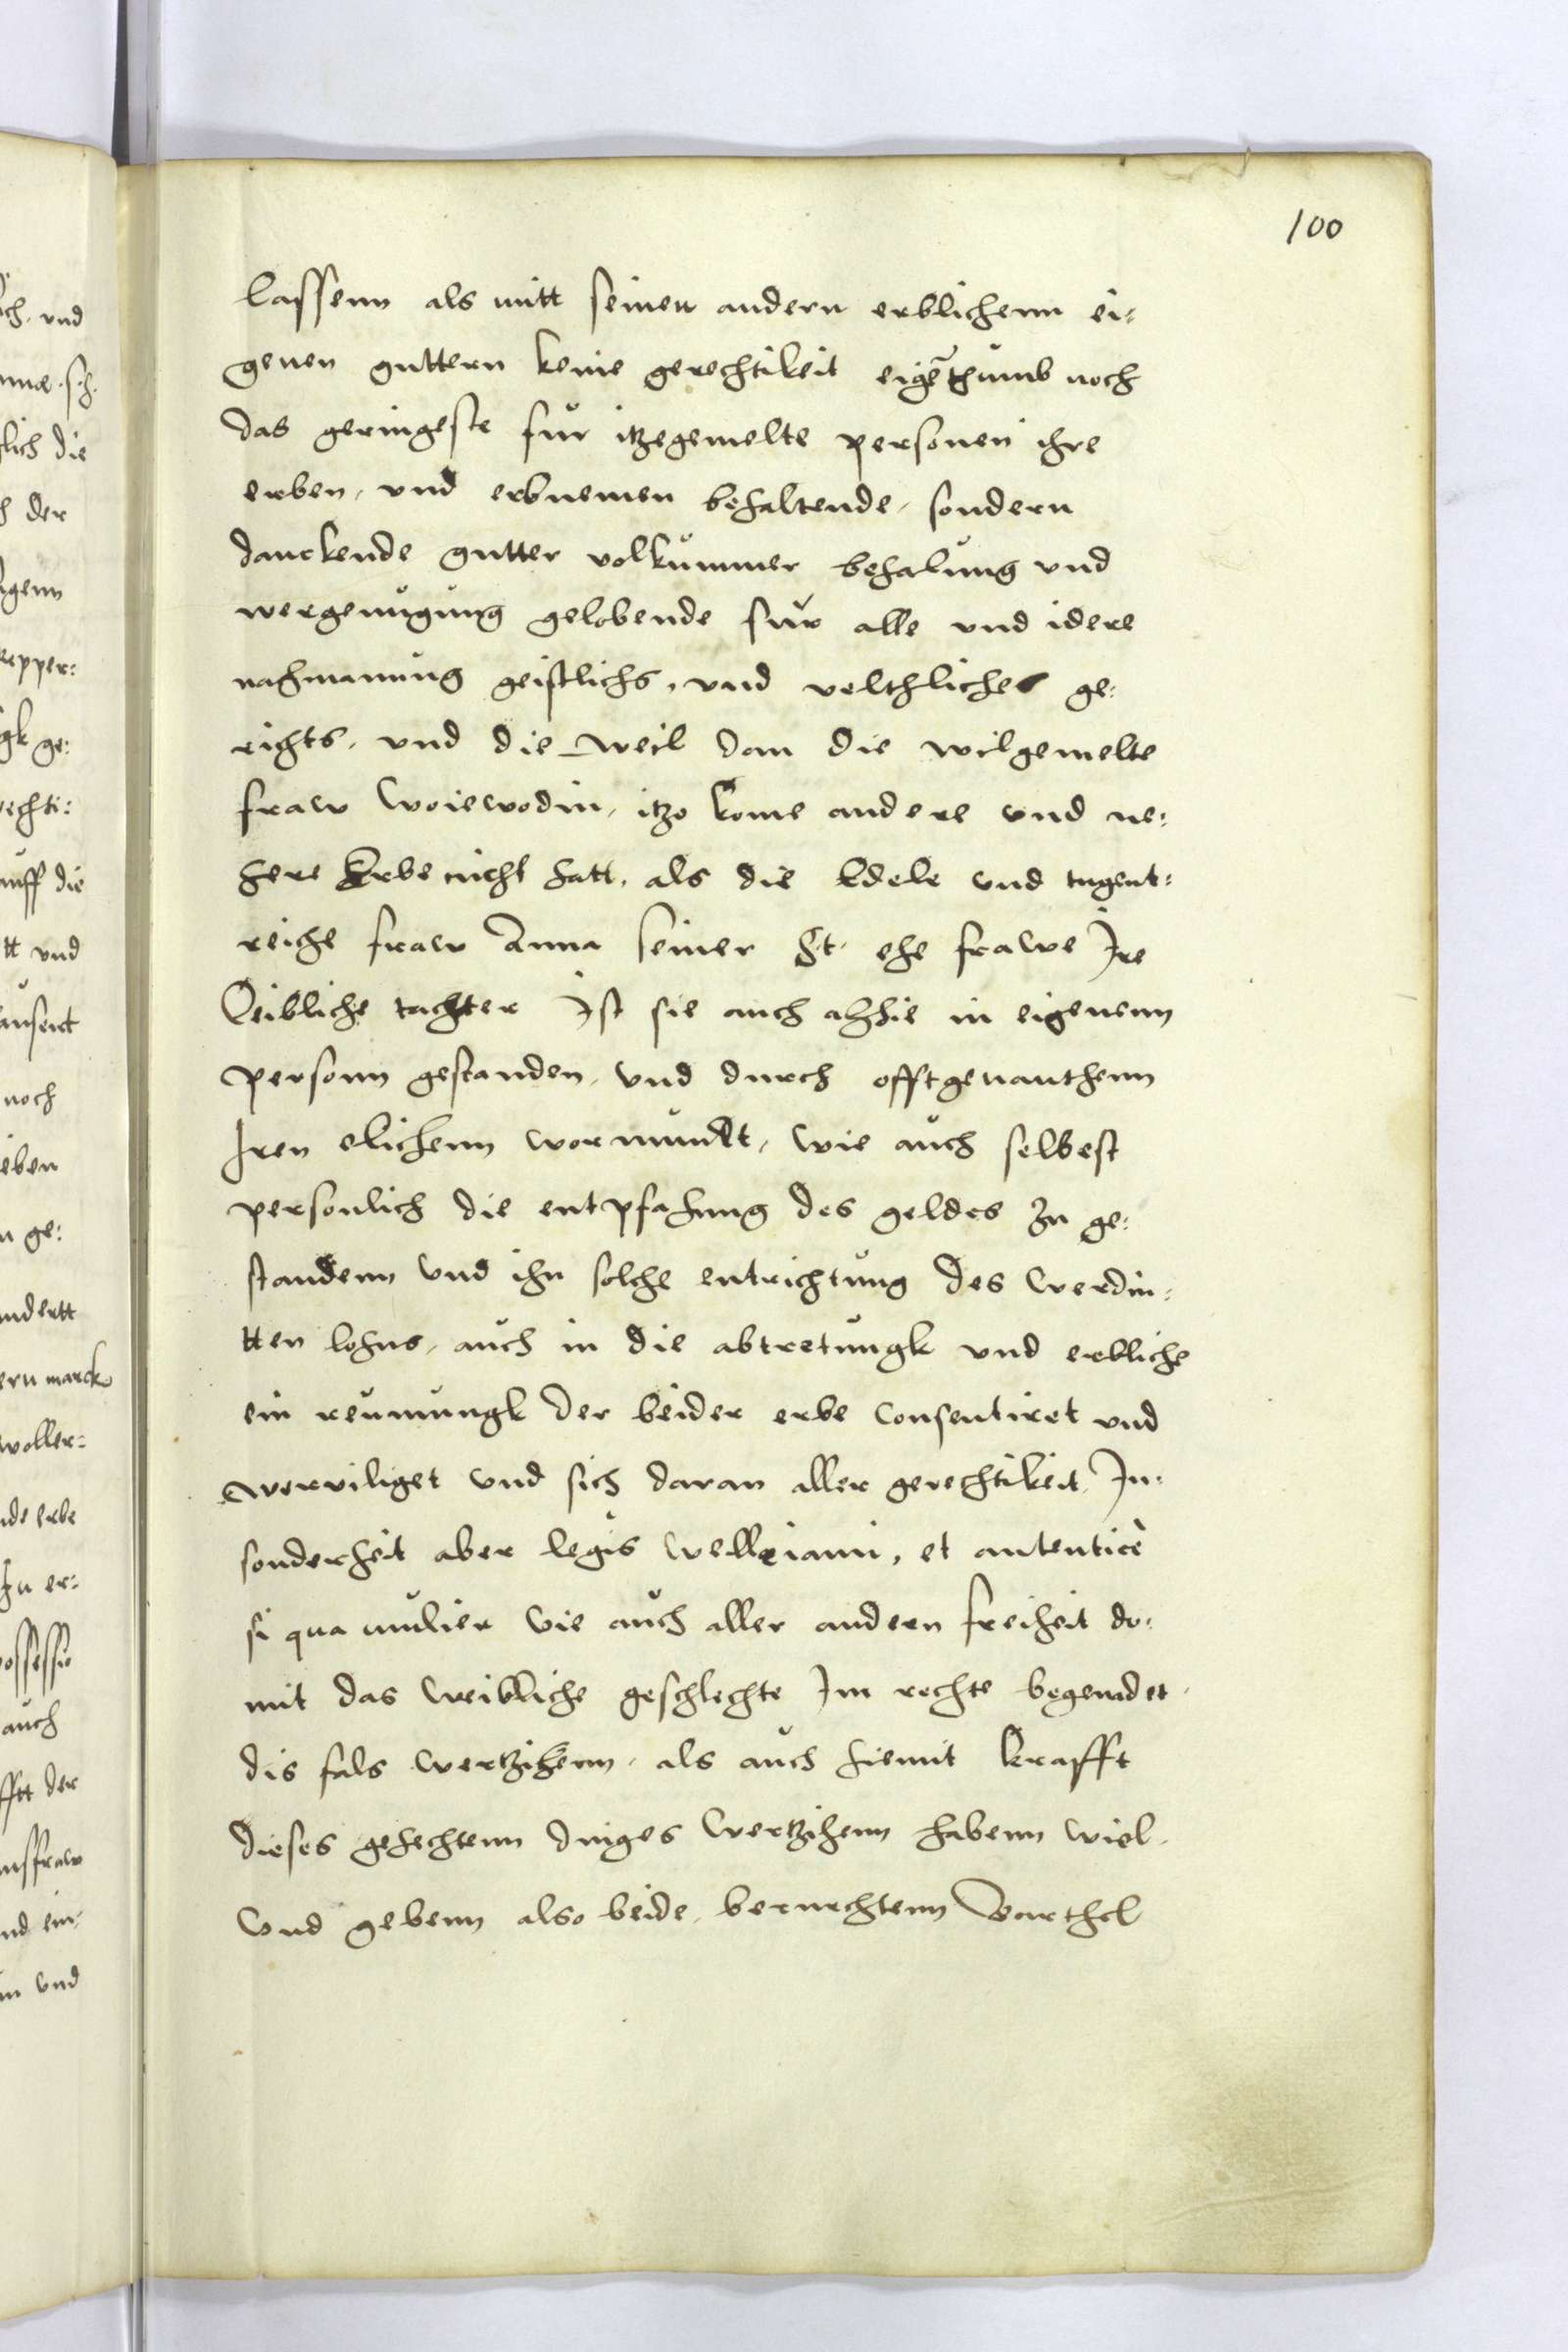 100
lassenn als mitt seinen andern erblichenn ei:
genen guttern keine gerechtikeit eigēthumb noch
das geringeste fur itzegemelte personen ihre
erben, und erbnemen behaltende, sondern
danckende gutter volkummer behalung und
wergenugung gelobende fur alle und idere
nachmanung geistlichs, und veltliches ge:
richts, und die weil dan die wilgemelte
fraw Woiewodin, itzo kome andere und ne:
here Erbe nicht hatt, als die Edele und tugent:
reiche fraw Anna seiner H.t. ehe frawe Ire
Leibliche tachter Ist sie auch alhie in eigenenn
personn gestanden, und durch offtgenanthenn
Iren elichenn wormundt, wie auch selbest
personlich die entpfahung des geldes zu ge:
standenn und ihn solche entrichtung des werdin:
tten lohns, auch in die abtretungk und erbliche
ein reumungk der beider erbe consentiret und
werviliget und sich daran aller gerechtikeit, In:
sonderheit aber legis welleiani, et autenticè
si qua mulier vie auch aller andern freiheit do:
mit das weibliche geschlechte Im rechte begenadet
dis fals wertzihenn, als auch hiemit krafft
dieses gehechtenn dinges wertzihenn habenn wiel.
Und gebenn also beide, berurhtenn Barthel
ch, und
lich die
der
genn
repper:
gk ge:
rechti:
auff die
tt und
tausent
noch
eben
n ge:
ndertt
ern marck
woller:
de erbe
zu er:
possessio
auch
fft der
nsfraw
nd ein
nn und